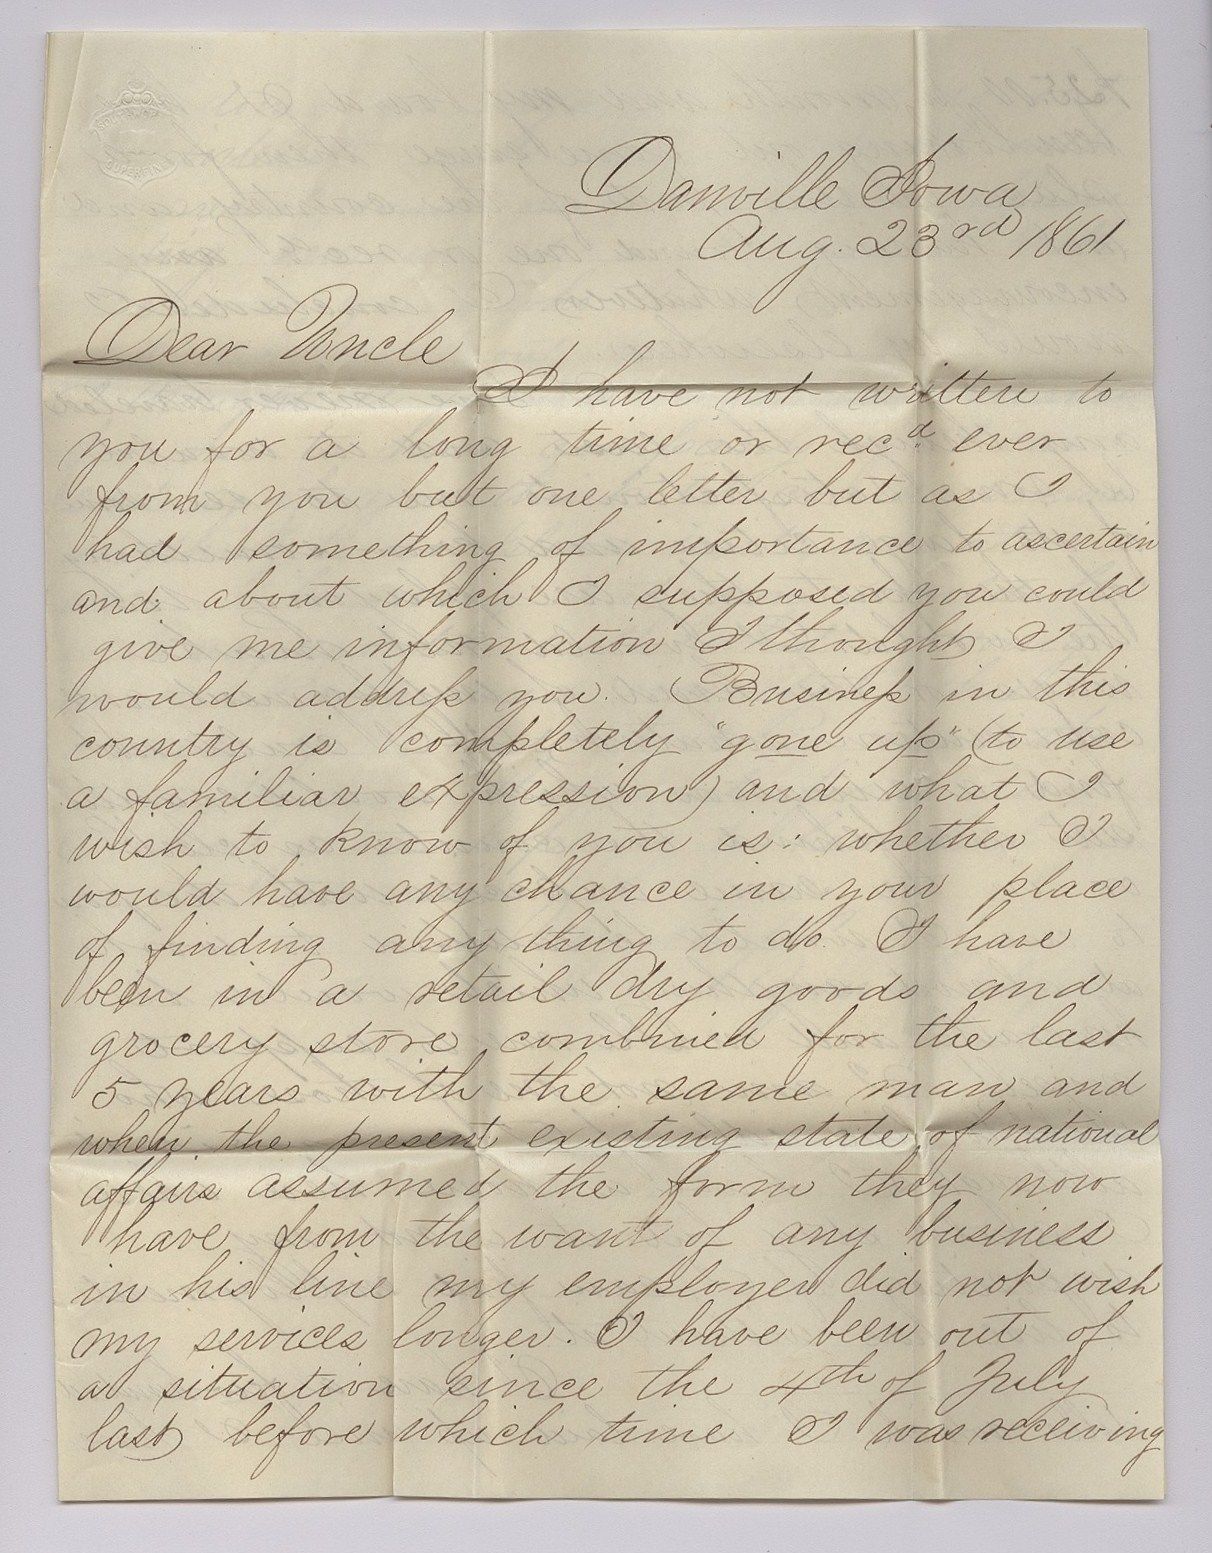 Danville Iowa
Aug. 23rd 1861
Dear Uncle
I have not written to
you for a long time or recd. ever
from you but one letter but as I
had something of importance to ascertain
and about which I supposed you could
give me information I thought I
would address you. Business in this
country is completely "gone up" (to use
a familiar expression) and what I
wish to know of you is: whether I
would have any chance in your place
of finding any thing to do. I have
been in a retail dry goods and
grocery store combined for the last
5 years with the same man and
when the present existing state of national
affairs assumed the form they now
have from the want of any business
in his line my employer did not wish
my services longer. I have been out of
a situation since the 4th of July
last before which time I was receiving